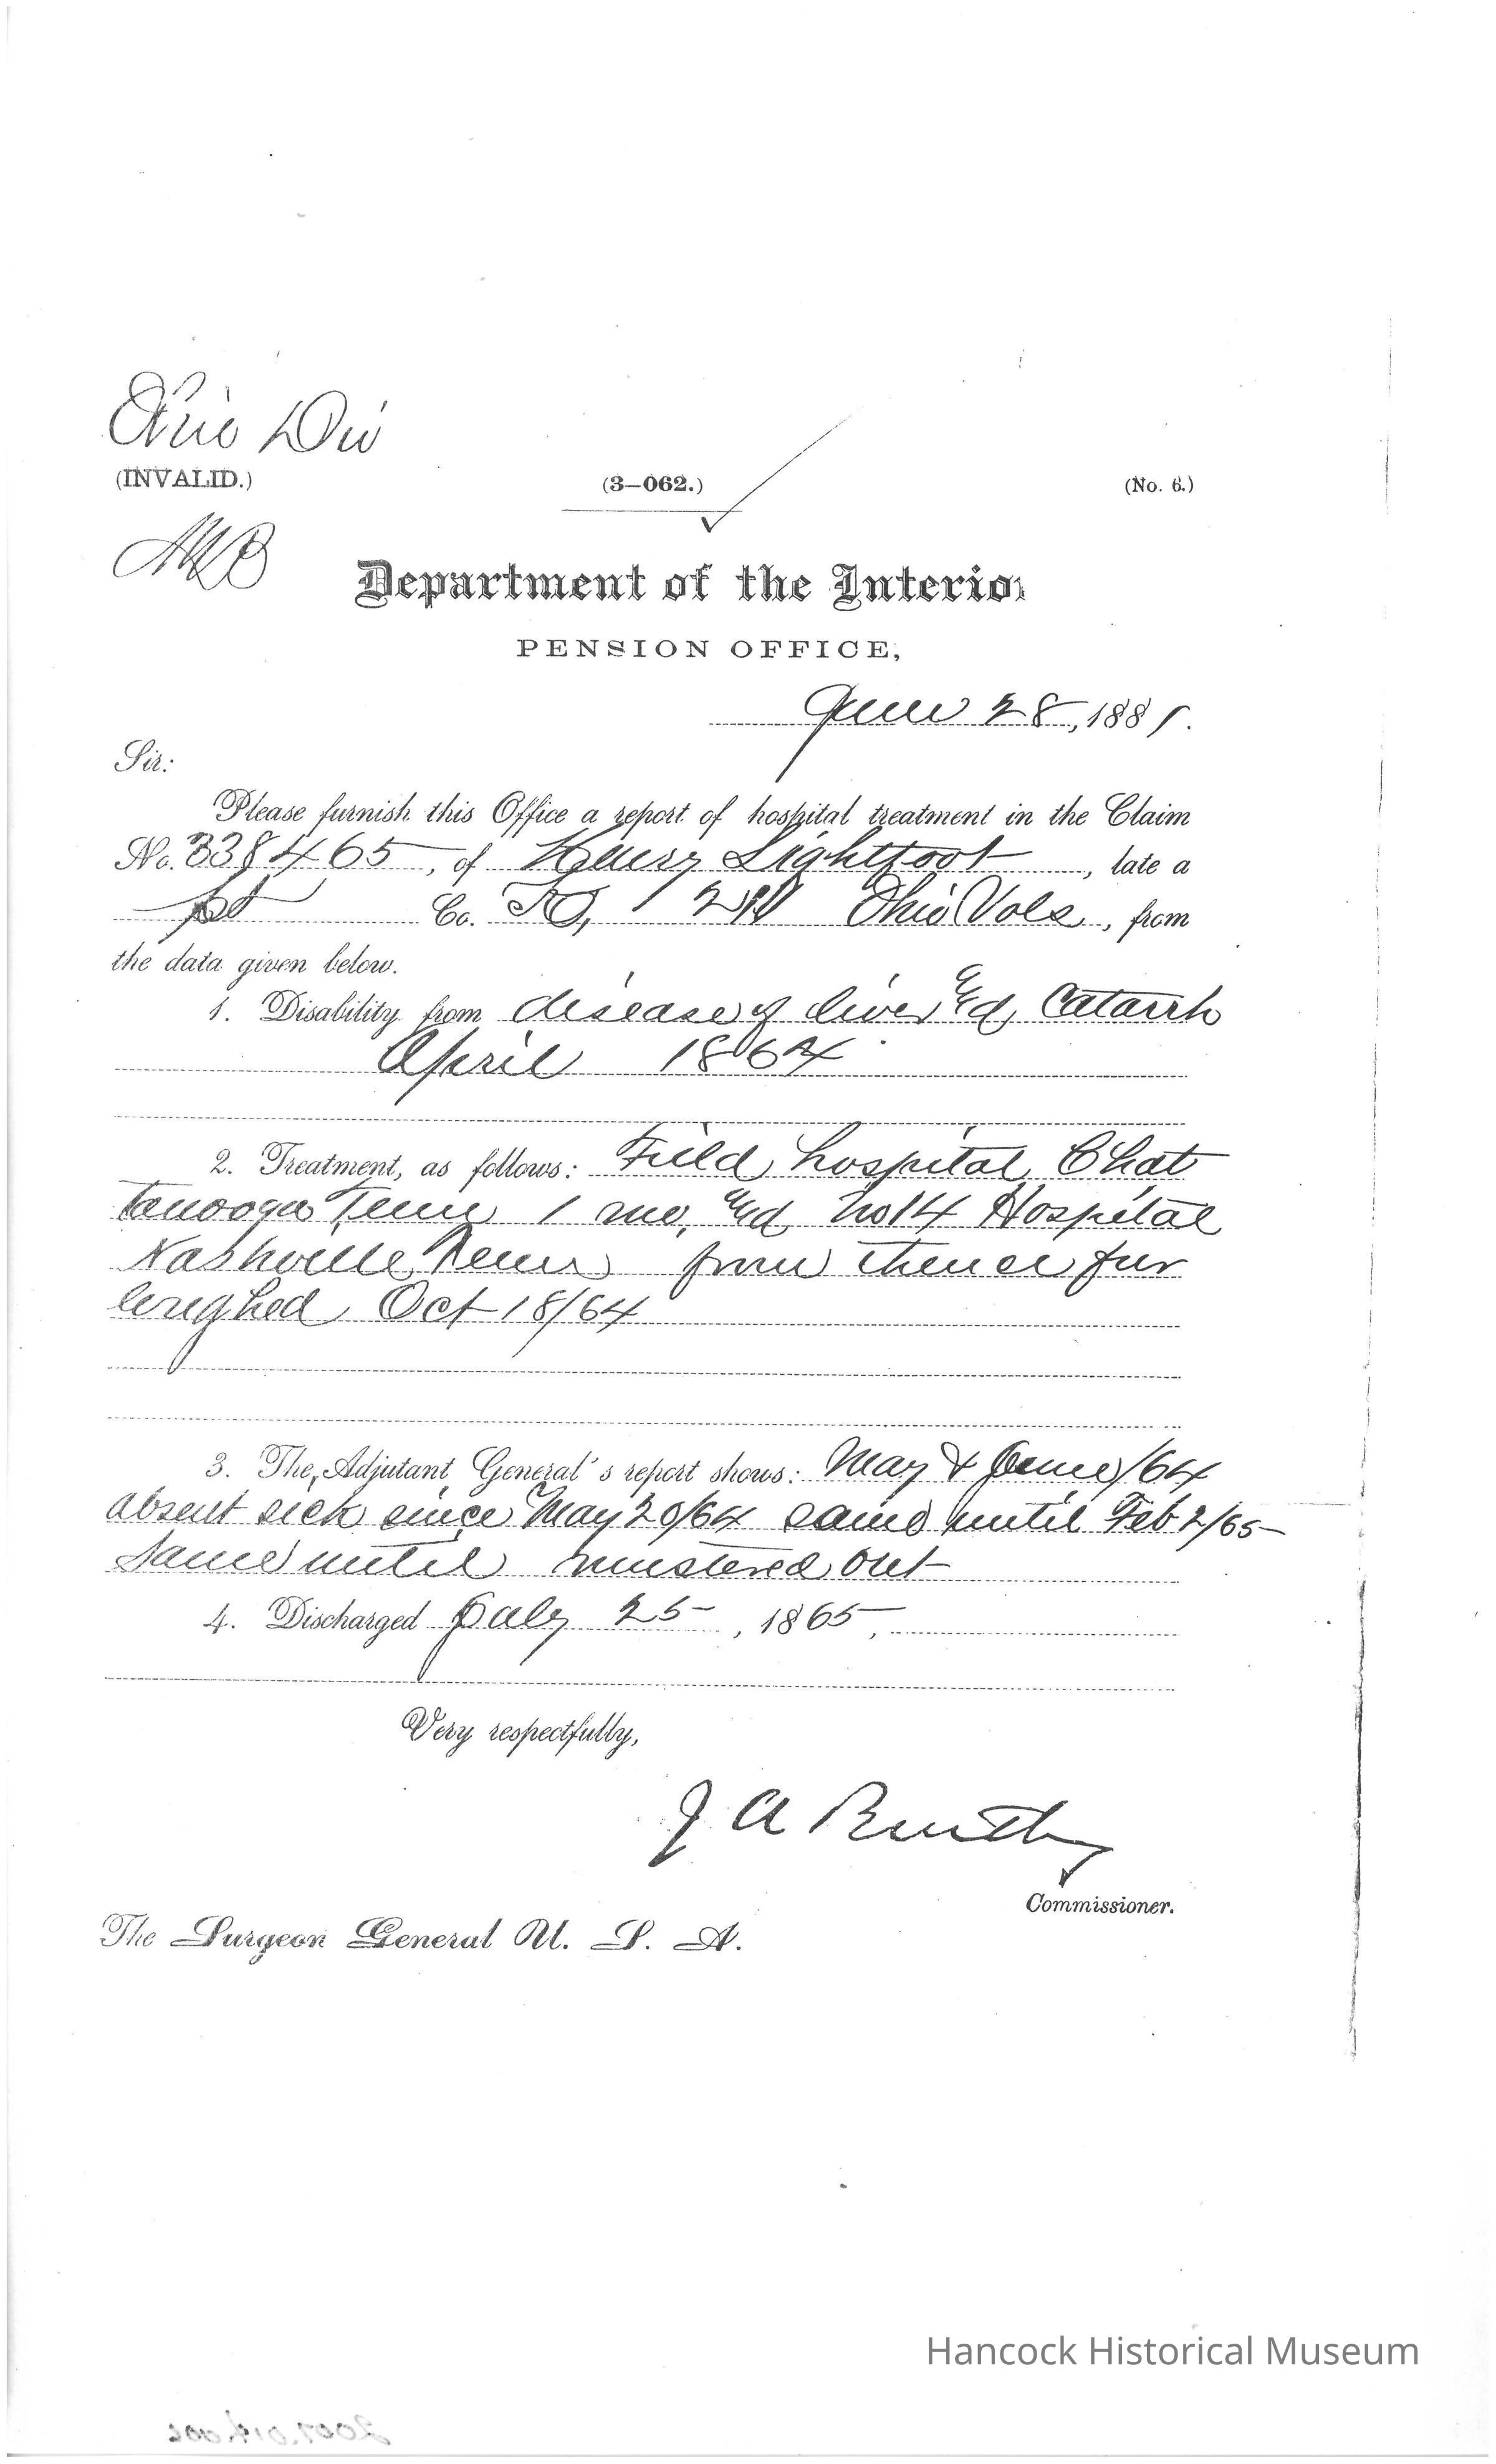 Div
(INVALID.) (3—062.) (No. 6.)
Department of the Interior
PENSION OFFICE,
June 28, 1881.
Sir:
Please furnish this Office a report of hospital treatment in the Claim
No. 338465, of Henry Lightfoot, late a
pt Co. 21 Ohio Vols, from
the data given below.
1. Disability from disease of liver & Catarrh
April 1864
2. Treatment, as follows: Field hospital Chat
tanooga Tenn 1 mo, No 14 Hospital
Nashville Tenn from thence fur
loughed Oct 18/64
3. The Adjutant General's report shows: May & June/64
absent sick since May 20/64 same until Feb 2/65
Same until mustered out
4. Discharged July 25, 1865,
Very respectfully,
J A Bentley
Commissioner.
The Surgeon General U. S. A.
Hancock Historical Museum